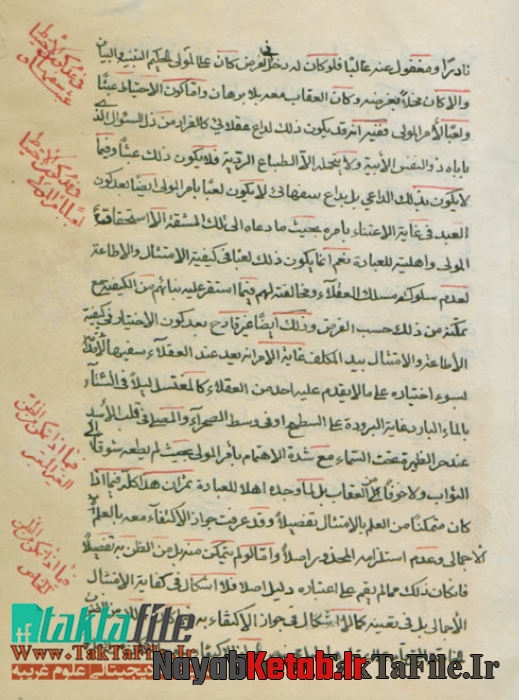 نادرًا و مغفول عنه غالبًا فلو كان له دخل في الغرض كان على المولى الحكيم التنبيه والبيان
والا كان مخلا بغرضه وكان العقاب معه بلا برهان واما كون الاحتياط عبثًا
ولعبًا بامر المولى ففيه انه قد يكون ذلك لداع عقلائي كالفرار من ذل السؤال الذي
ياباه ذو النفس الأبية ولا يتحمله الا الطباع الردية فلا يكون ذلك عبثًا وفيما
لا يكون بذلك الداعي بل بداع سفهائي لا يكون لعبًا بامر المولى ايضًا بعد كون
العبد في غاية الاعتناء بامره بحيث ما دعاه الى تلك المشقة الا استحقاقية
المولى واهليته للعبادة نعم انما يكون ذلك لعبًا في كيفية الامتثال والاطاعة
لعدم سلوكه مسلك العقلاء ومخالفته لهم فيما استقر عليه بنائهم من الكيفية مع
تمكنه من ذلك حسب الغرض وذلك ايضًا غير قادح بعد كون الاختيار في كيفية
الأطاعة والامتثال بيد المكلف غاية الامر انه يعد عند العقلاء سفيها
لسوء اختياره على ما لا يقدم عليه احد من العقلاء كالمغتسل ليلًا في الشتاء
بالماء البارد غاية البرودة على السطح او في وسط الصحراء والمصلي في قلب الأسد
عند حر الظهيرة تحت السماء مع شدة الاهتمام بأمر المولى بحيث لم يطعه شوقًا الى
الثواب ولا خوفًا من العقاب بل لما وجده اهلا للعبادة ثم ان هذا كله فيما اذا
كان متمكنًا من العلم بالامتثال تفصيلًا وقد عرفت جواز الاكتفاء معه بالعلم
الاجمالي وعدم استلزامه المحذور اصلًا واما لو لم يتمكن منه بل من الظن به تفصيلًا
فان كان ذلك مما لم يقم على اعتباره دليل اصلا فلا اشكال في كفاية الامتثال
الأجمالي بل في تعينه كما لا اشكال في جواز الاكتفاء به
في عدم كون الاحتياط
عبثًا
في عدم كون الاحتياط
لعبًا بامر المولى
فيما اذا تمكن من الظن
الغير المعتبر
فيما اذا تمكن من الظن
الخاص
taktafile
www.TakTaFile.Ir
دیجیتالی علوم غریبه
NayabKetab.Ir
TakTaFile.Ir